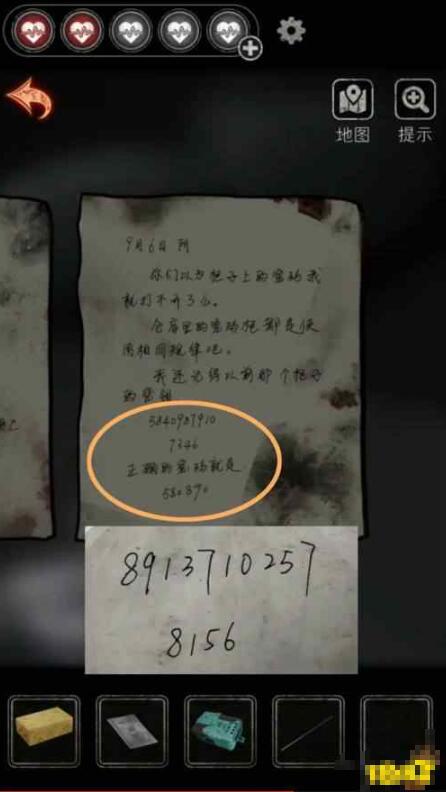 地图 提示
9月6日 阴
你们以为柜子上的密码我
就打不开了么。
仓库里的密码柜都是使
用相同规律吧。
我还记得以前那个柜子
的密码
5840987910
7346
正确的密码就是
8913710257
8156